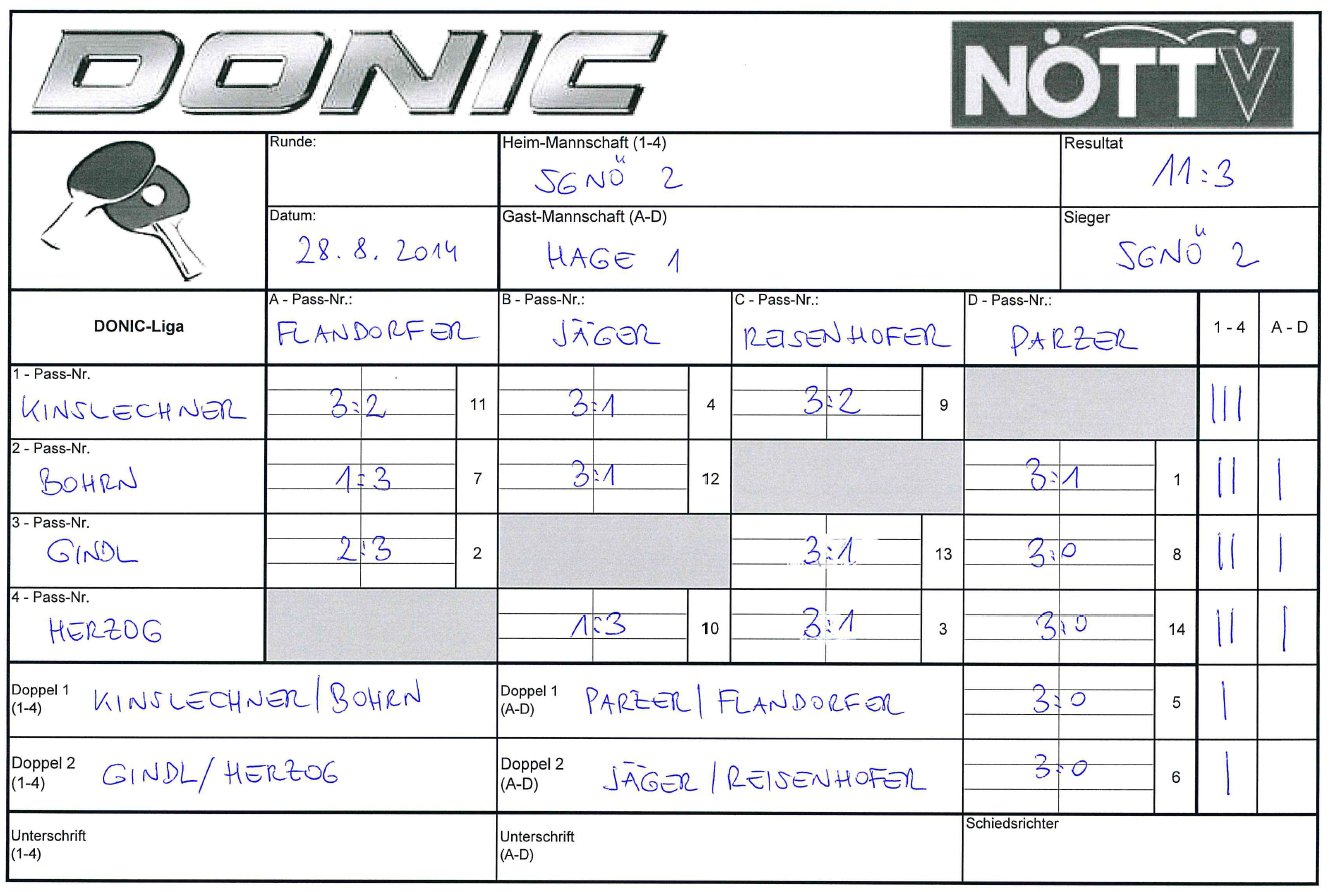 DONIC
NÖTTV
Runde:
Heim-Mannschaft (1-4)
SGNÖ 2
Resultat
11:3
Datum:
28. 8. 2014
Gast-Mannschaft (A-D)
HAGE 1
Sieger
SGNÖ 2
DONIC-Liga
A - Pass-Nr.:
FLANDORFER
B - Pass-Nr.:
JÄGER
C - Pass-Nr.:
REISENHOFER
D - Pass-Nr.:
PARZER
1 - 4
A - D
1 - Pass-Nr.
KINSLECHNER 3:2 11 3:1 4 3:2 9 |||
2 - Pass-Nr.
BOHRN 1:3 7 3:1 12 3:1 1 || |
3 - Pass-Nr.
GINDL 2:3 2 3:1 13 3:0 8 || |
4 - Pass-Nr.
HERZOG 1:3 10 3:1 3 3:0 14 || |
Doppel 1
(1-4)
KINSLECHNER/BOHRN
Doppel 1
(A-D)
PARZER/FLANDORFER
3:0 5 |
Doppel 2
(1-4)
GINDL/HERZOG
Doppel 2
(A-D)
JÄGER/REISENHOFER
3:0 6 |
Unterschrift
(1-4)
Unterschrift
(A-D)
Schiedsrichter